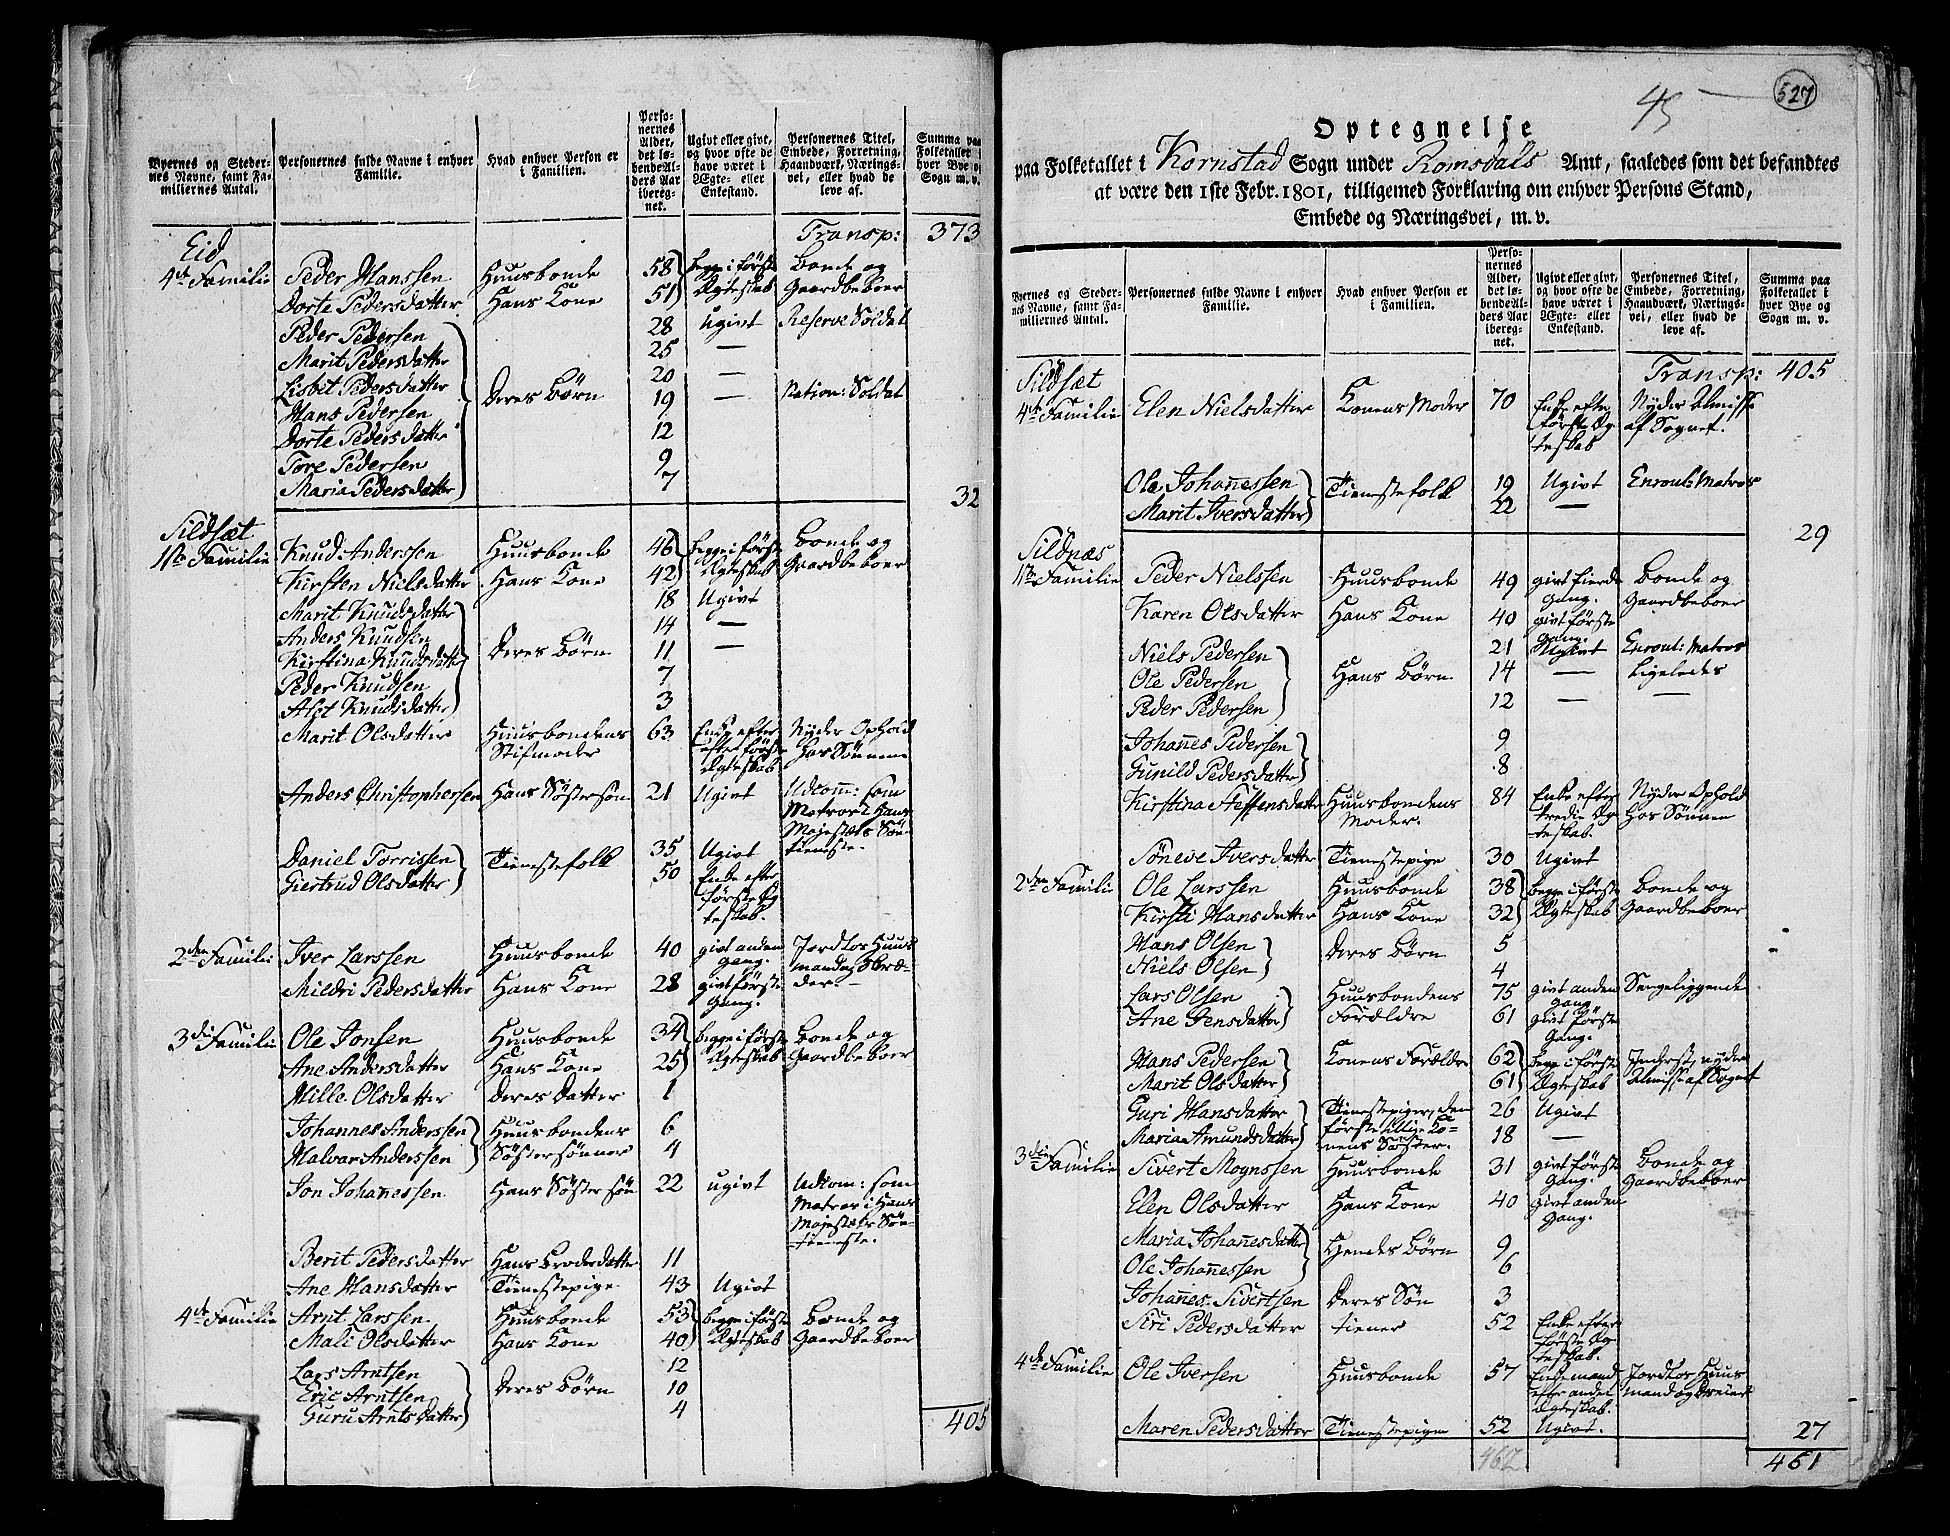 Byernes og Steder-
nes Navne, samt Fa-
miliernes Antal.
Personernes fulde Navne i enhver
Familie.
Hvad enhver Person er
i Familien.
Perso-
nernes
Alder,
det lø-
bende Al-
ders Aar
iberegnet.
Ugivt eller givt,
og hvor ofte de
have været i
Ægte- eller
Enkestand.
Personernes Titel,
Embede, Forretning,
Haandværk, Nærings-
vei, eller hvad de
leve af.
Summa paa
Folketallet i
hver Bye og
Sogn m. v.
Transp: 373
Eid
4de Familie Peder Hanssen Huusbonde 58 begge i første Bonde og
Dorte Pedersdatter Hans Kone 51 Ægteskab Gaardbeboer
Peder Pedersen 28 Ugivt Reserve Soldat
Marit Pedersdatter 25 —
Lisbet Pedersdatter 20 —
Hans Pedersen Deres Børn 19 — Nation: Soldat
Dorte Pedersdatter 12
Tore Pedersen 9
Maria Pedersdatter 7
32
Sildsæt
1ste Familie Knud Anderssen Huusbonde 46 begge i første Bonde og
Kirsten Nielsdatter Hans Kone 42 Ægteskab Gaardbeboer
Marit Knudsdatter 18 Ugivt
Anders Knudsen 14 —
Kirstina Knudsdatter Deres Børn 11 —
Peder Knudsen 7
Alet Knudsdatter 3
Marit Olsdatter Huusbondens 63 Enke efter Nyder Ophold
Stifmoder efter første hos Sønnene
Ægteskab
Anders Christophersen Hans Søstersøn 21 Ugivt Udcomm: som
Matros i Hans
Majestæts Søe
tieneste.
Daniel Torrissen Tienestefolk 35 Ugivt
Giertrud Olsdatter 50 Enke efter
første Æg
teskab.
2den Familie Iver Larssen Huusbonde 40 givt anden Jordløs Huus
gang. mand og
Mildri Pedersdatter Hans Kone 28 givt første
Gang.
3die Familie Ole Jonsen Huusbonde 34 begge i første Bonde og
Ane Andersdatter Hans Kone 25 Ægteskab Gaardbeboer
Mille Olsdatter Deres Datter 1
Johannes Anderssen Huusbondens 6
Halvor Anderssen Søstersønner 4
Jon Johanessen Hans Søstersøn 22 ugivt Udkom: som
Matros i Hans
Majestæts Søe
tieneste.
Berit Pedersdatter Hans Broderdatter 11
Ane Hansdatter Tienestepige 43 Ugivt
4de Familie Arnt Larssen Huusbonde 53 begge i første Bonde og
Mali Olsdatter Hans Kone 40 Ægteskab Gaardbeboer
Lars Arntsen 12
Eric Arntsen Deres Børn 10
Guru Arntsdatter 4
405
45
527
Optegnelse
paa Folketallet i Kornstad Sogn under Romsdals Amt, saaledes som det befandtes
at være den 1ste Febr. 1801, tilligemed Forklaring om enhver Persons Stand,
Embede og Næringsvei, m. v.
Byernes og Steder-
nes Navne, samt Fa-
miliernes Antal.
Personernes fulde Navne i enhver
Familie.
Hvad enhver Person er
i Familien.
Perso-
nernes
Alder,
det lø-
bende Al-
ders Aar
iberegnet.
Ugivt eller givt,
og hvor ofte de
have været i
Ægte- eller
Enkestand.
Personernes Titel,
Embede, Forretning,
Haandværk, Nærings-
vei, eller hvad de
leve af.
Summa paa
Folketallet i
hver Bye og
Sogn m. v.
Transp: 405
Sildsæt
4de Familie Elen Nielsdatter Konens Moder 70 Enke efter Nyder Almisse
første Æg af Sognet.
teskab
Ole Johanessen Tienestefolk 19 Ugivt Enroul: Matros
Marit Iversdatter 22 —
29
Sildnæs
1ste Familie Peder Nielssen Huusbonde 49 givt fierde Bonde og
Gang. Gaardbeboer
Karen Olsdatter Hans Kone 40 givt første
Gang.
Niels Pedersen 21 Ugivt Enroul: Matros
Ole Pedersen Hans Børn 14 — Ligeledes
Peder Pedersen 12 — —
Johanes Pedersen 9
Gunild Pedersdatter 8
Kirstina Steffensdatter Huusbondens 84 Enke efter Nyder Ophold
Moder. tredie Æg hos Sønnen
teskab.
Søneve Iversdatter Tienestepige 30 Ugivt
2den Familie Ole Larssen Huusbonde 38 begge i første Bonde og
Kirsti Hansdatter Hans Kone 32 Ægteskab Gaardbeboer
Hans Olsen Deres Børn 5
Niels Olsen 4
Lars Olsen Huusbondens 75 givt anden Sengeliggende
Gang
Ane Jensdatter Forældre 61 givt første
Gang.
Hans Pedersen Konens Forældre 62 begge i første Inderst, nyder
Marit Olsdatter 61 Ægteskab Almisse af Sognet
Guri Hansdatter Tienestepiger, den 26 Ugivt
Maria Amundsdatter første tillige Ko- 18 —
nens Søster.
3die Familie Sivert Mognssen Huusbonde 31 givt første Bonde og
Gang. Gaardbeboer
Elen Olsdatter Hans Kone 40 givt anden
Gang.
Maria Johanesdatter Hendes Børn 9
Ole Johanessen 6
Johanes Sivertsen Deres Søn 3
Siri Pedersdatter tiener 52 Enke efter
første Æg
teskab.
4de Familie Ole Iversen Huusbonde 57 Enkemand Jordløs Huus
efter andet mand og Dreier
Ægteskab.
Maren Pedersdatter Tienestepige 52 Ugivt.
27
462 461